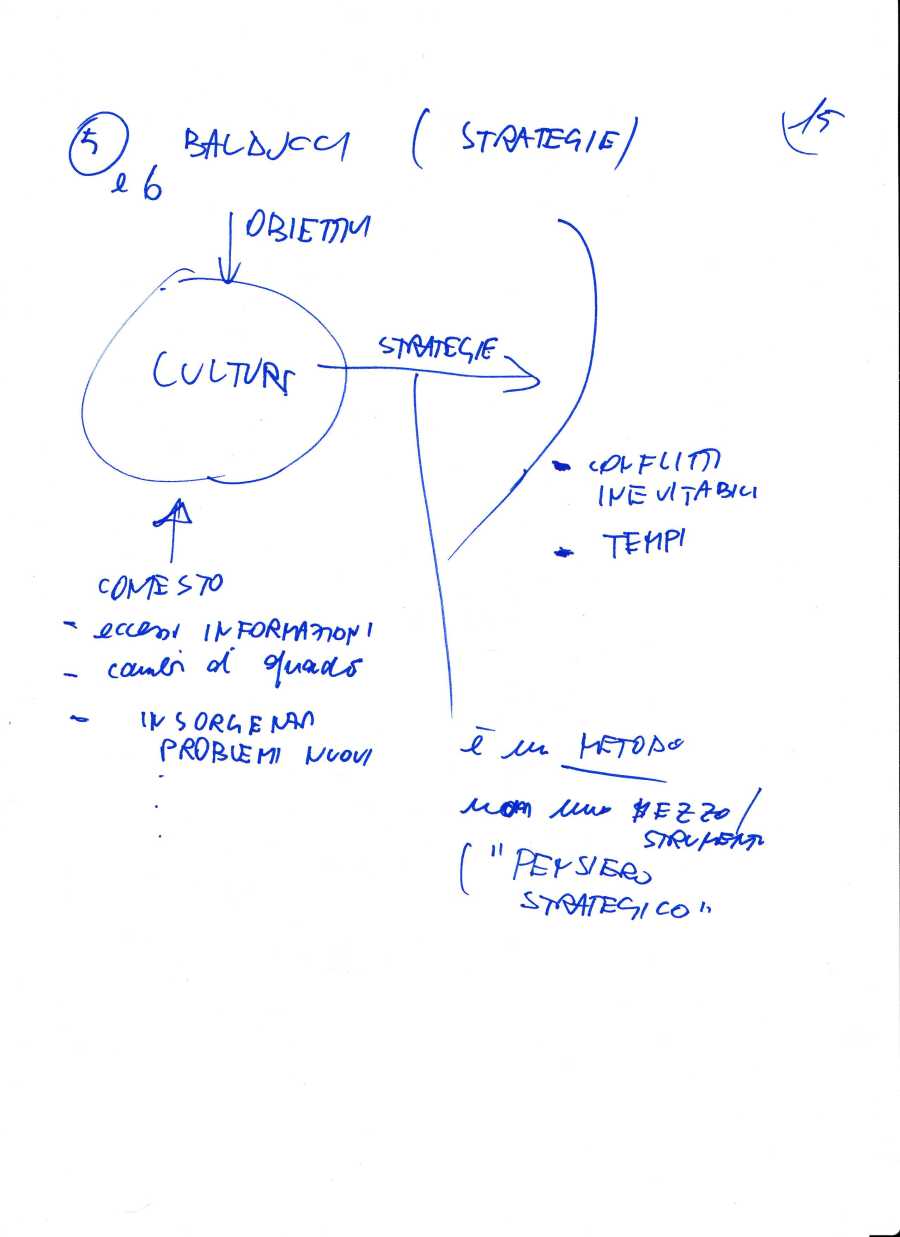 5 BALDUCCI (STRATEGIE) 15
e 6
OBIETTIVI
STRATEGIE
CULTURA
- CONFLITTI
INEVITABILI
- TEMPI
CONTESTO
- eccessi INFORMAZIONI
- cambi di quadro
- INSORGENZA
PROBLEMI NUOVI
è un METODO
non uno MEZZO/
STRUMENTO
("PENSIERO
STRATEGICO"